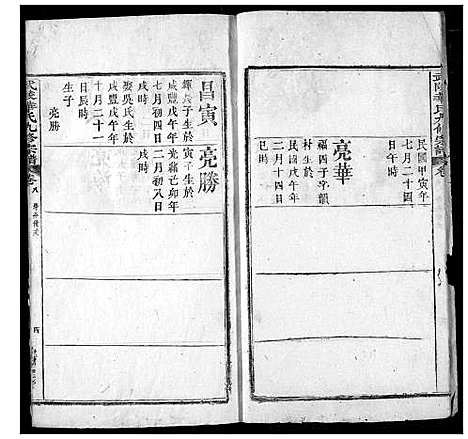 民國甲寅年
七月二十四
日午時
亮華
福四子字韻
村生於
民國戊午年
二月十四日
巳時
亮勝
寅子生於
光緒己卯年
二月初八日
戌時
昌寅
輝長子生於
咸豐戊午年
七月初四日
戌時
娶吳氏生於
咸豐戊午年
十月二十一
日辰時
生子
亮勝
氏九修宗譜
卷八
四